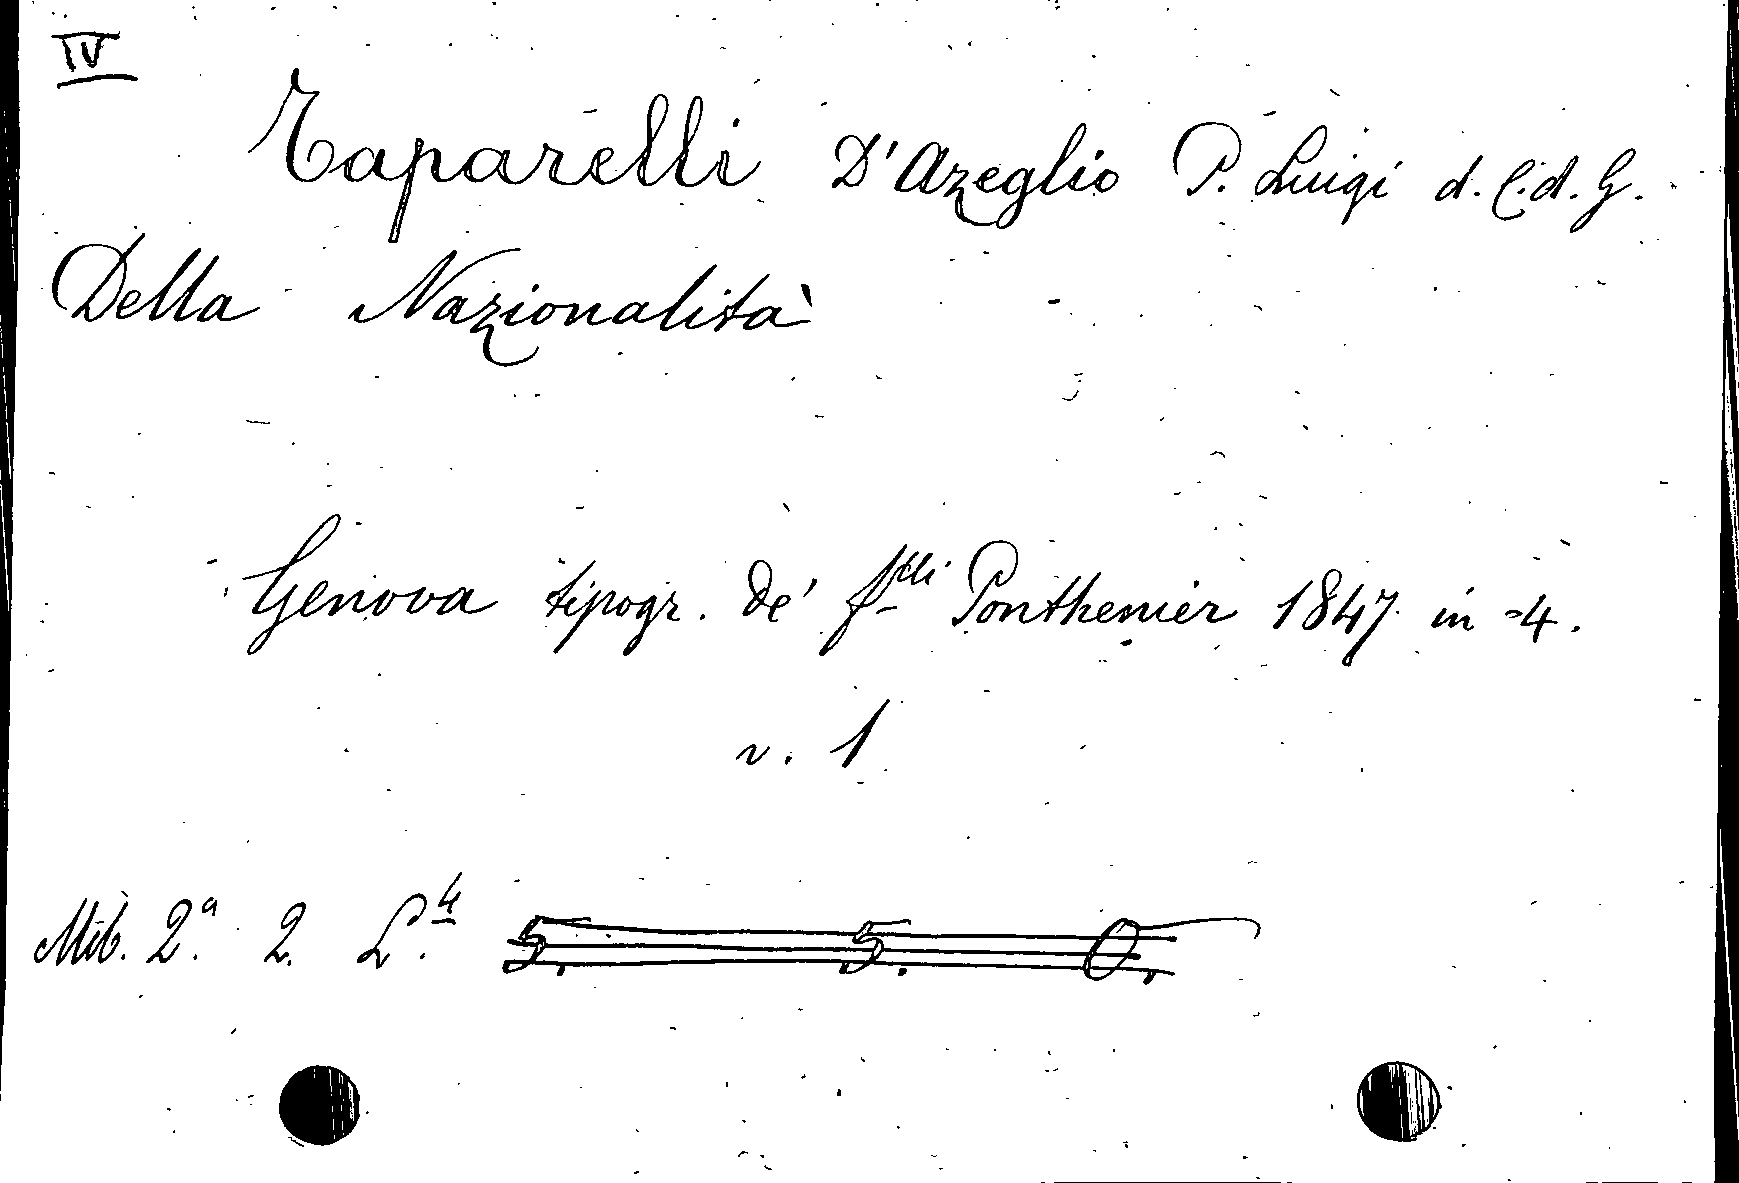 IV
Taparelli D'Azeglio P. Luigi d. C. d. G.
Della Nazionalità
Genova tipogr. de' f.lli Ponthenier 1847 in -4.
v. 1
2.a 2. 5. 5. 0.